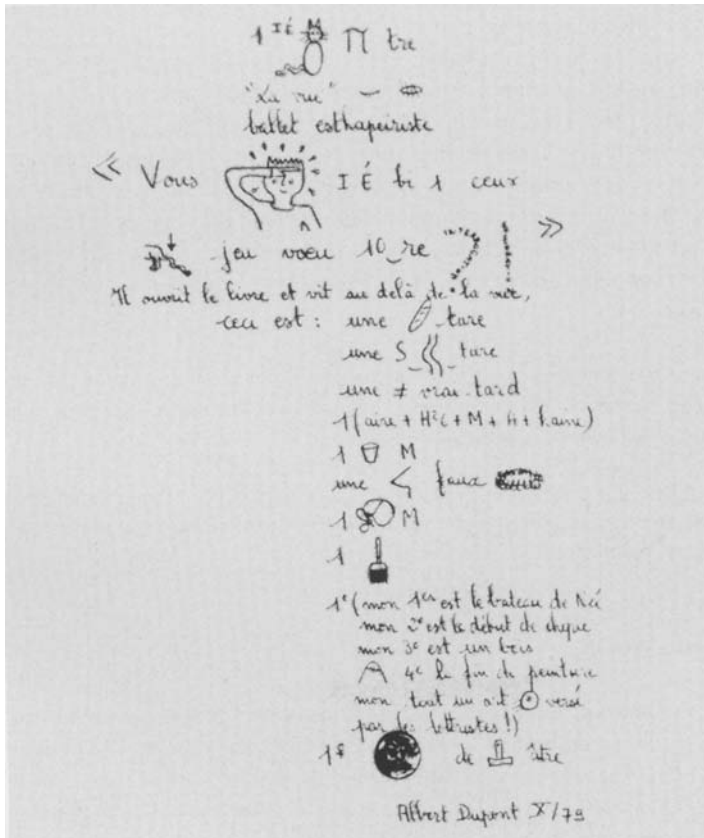 1 IÉ M Π tre
"La vue"
ballet esthapeïriste
« Vous IÉ bi 1 ceux
jeu voeu 10_re ? ! »
Il ouvrit le livre et vit au delà de la vue,
ceci est : une tare
une S_ _ture
une ≠ vrai-tard
1(aire + H²C + M + A + haine)
1 M
une < faux
1 M
1
1e (mon 1er est le bateau de Noé
mon 2e est le début de chèque
mon 3e est un bois
4e la fin de peinture
mon tout un art versé
par les lettristes !)
1 de être
Albert Dupont X/79